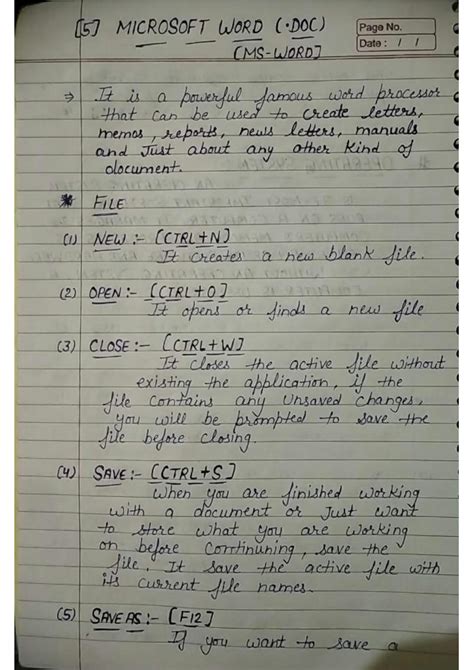 [5] MICROSOFT WORD (.DOC)
[MS-WORD]
Page No.
Date : / /
⇒ It is a powerful famous word processor
that can be used to create letters,
memos, reports, news letters, manuals
and Just about any other kind of
document.
* FILE
(1) NEW :- [CTRL+N]
It creates a new blank file.
(2) OPEN :- [CTRL+O]
It opens or finds a new file
(3) CLOSE :- [CTRL+W]
It closes the active file without
existing the application, if the
file contains any Unsaved changes,
you will be prompted to save the
file before closing.
(4) SAVE :- [CTRL+S]
When you are finished working
with a document or Just want
to store what you are working
on before Continuning, save the
file. It save the active file with
its current file names.
(5) SAVE AS :- [F12]
If you want to save a